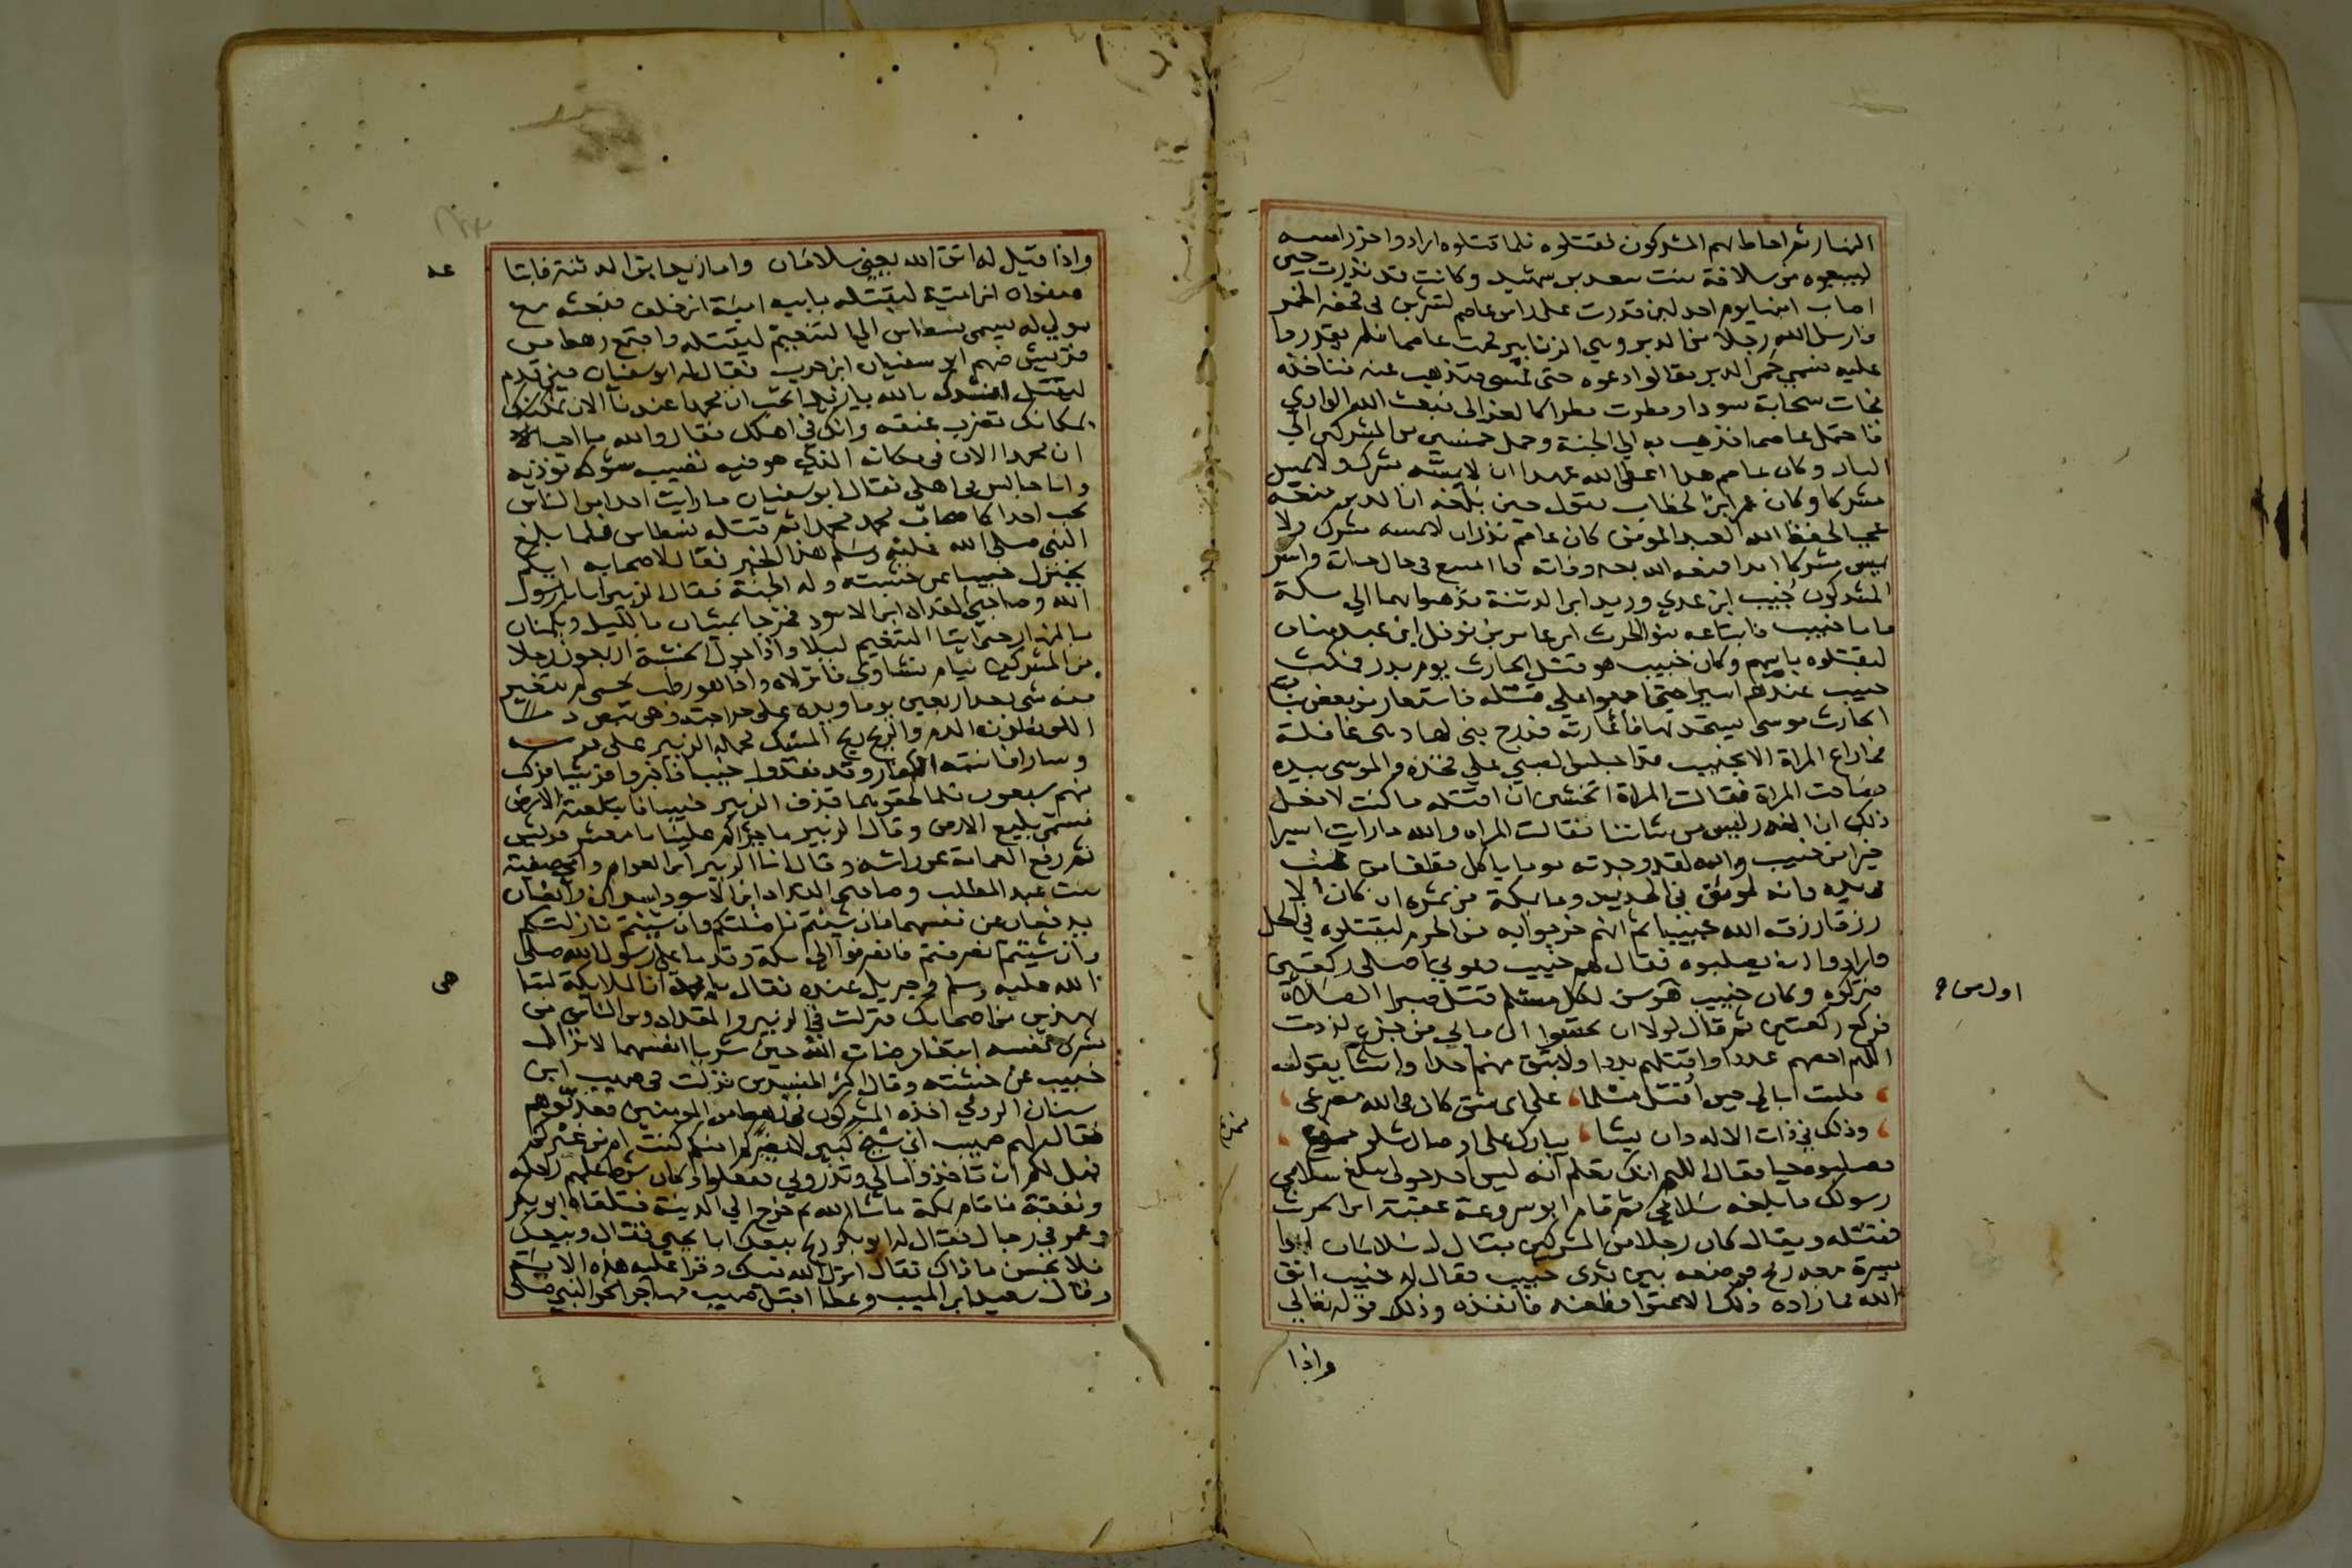 النهار ثم احاط بهم المشركون فقتلوه فلما قتلوه ارادوا حز راسه
ليبيعوه من سلافة بنت سعد بن شهيد وكانت قد نذرت حين
اصاب ابنها يوم احد لين قدرت على راس عاصم لتشربن في قحفه الخمر
فارسل الله رجلا من الدبر وهي الزنابير فحمت عاصما فلم يقدروا
عليه فسمي حمي الدبر فقالوا دعوه حتى تمسي فتذهب عنه فناخذه
فجات سحابة سودا ومطرت مطرا كالعزالى فبعث الله الوادي
فاحتمل عاصما فذهب به الى الجنة وحمل خمسين من المشركين الى
النار وكان عاصم هذا اعطى الله عهدا ان لا يمسه مشرك ولا يمس
مشركا وكان عمر ابن الخطاب يقول حين بلغه ان الدبر منعته
عجبا لحفظ الله العبد المومن كان عاصم نذر ان لا يمسه مشرك ولا
يمس مشركا ابدا فمنعه الله بعد وفاته ما امتنع في حال حياته واسر
المشركون خبيب ابن عدي وزيد ابن الدثنة فذهبوا بهما الى مكة
فاما خبيب فابتاعه بنو الحرث ابن عامر بن نوفل ابن عبد مناف
ليقتلوه بابيهم وكان خبيب هو قتل الحارث يوم بدر فمكث
خبيب عندهم اسيرا حتى اجمعوا على قتله فاستعار من بعض بنات
الحارث موسى يستحد بها فاعارته فدرج بني لها وهي غافلة
فما راع المراة الا خبيب قد اجلس الصبي على فخذه والموسى بيده
فصاحت المراة فقالت المراة اتخشين ان اقتله ما كنت لافعل
ذلك ان الغدر ليس من شاننا فقالت المراه والله ما رايت اسيرا
خيرا من خبيب والله لقد وجدته يوما ياكل قطفا من عنب
في يده وانه لموثق في الحديد وما بمكة من ثمره ان كان الا
رزقا رزقه الله خبيبا ثم انهم خرجوا به من الحرم ليقتلوه في الحل
وارادوا ان يصلبوه فقال لهم خبيب دعوني اصلي ركعتين
فتركوه وكان خبيب هو سن لكل مسلم قتل صبرا الصلاة
فركع ركعتين ثم قال لولا ان تحسبوا ان ما بي من جزع لزدت
اللهم احصهم عددا واقتلهم بددا ولا تبق منهم احدا وانشا يقول
فلست ابالي حين اقتل مسلما على اي شق كان في الله مصرعي
وذلك في ذات الاله وان يشا يبارك على اوصال شلو ممزع
فصلبوه حيا فقال اللهم انك تعلم انه ليس احد حولي يبلغ سلامي
رسولك فابلغه سلامي ثم قام ابو سروعة عقبة ابن الحرث
فقتله ويقال كان رجلا من المشركين يقال له سلامان ابو
ميسرة معه رمح فوضعه بين ثدي خبيب فقال له خبيب اتق
الله فما زاده ذلك الا عتوا فطعنه فانفذه وذلك قوله تعالى
واذا
اول ص
واذا قيل له اتق الله يعني سلامان واما زيد ابن الدثنة فابتا
صفوان ابن امية ليقتله بابيه امية ابن خلف فبعثه مع
مولى له يسمى نسطاس الى التنعيم ليقتله واجتمع رهط من
قريش منهم ابو سفيان ابن حرب فقال له ابو سفيان حين قدم
ليقتل انشدك بالله يا زيد اتحب ان محمدا عندنا الان
بمكانك تضرب عنقه وانك في اهلك فقال والله ما احب
ان محمدا الان في مكانه الذي هو فيه تصيبه شوكة توذيه
وانا جالس في اهلي فقال ابو سفيان ما رايت احدا من الناس
يحب احدا كاصحاب محمد محمدا ثم قتله نسطاس فلما بلغ
النبي صلى الله عليه وسلم هذا الخبر فقال لاصحابه ايكم
يختزل خبيبا عن خشبته وله الجنة فقال الزبير انا يا رسول
الله وصاحبي المقداد ابن الاسود فخرجا يمشيان بالليل ويكمنان
بالنهار حتى اتيا التنعيم ليلا واذا حول الخشبة اربعون رجلا
من المشركين نيام نشاوى فانزلاه واذا هو رطب يحسى لم يتغير
منه شي بعد اربعين يوما ويده على جراحته وهي تبص دما
اللون لون الدم والريح ريح المسك فحمله الزبير على فرسه
وسارا فانتبه الكفار وقد فقدوا خبيبا فاخبروا قريشا فركب
منهم سبعون فلما لحقوهما قذف الزبير خبيبا فابتلعته الارض
فسمي بليع الارض وقال الزبير ما جراكم علينا يا معشر قريش
ثم رفع العمامة عن راسه وقال انا الزبير ابن العوام وامي صفية
بنت عبد المطلب وصاحبي المقداد ابن الاسود اسدان رابضان
يدفعان عن نفسهما فان شيتم ناضلتكم وان شيتم نازلتكم
وان شيتم انصرفتم فانصرفوا الى مكة وقدما على رسول الله صلى
الله عليه وسلم وجبريل عنده فقال يا محمد ان الملايكة لتباهي
بهذين من اصحابك فنزلت في الزبير والمقداد ومن الناس من
يشري نفسه ابتغا مرضات الله حين شريا انفسهما لانزال
خبيب عن خشبته وقال اكثر المفسرين نزلت في صهيب ابن
سنان الرومي اخذه المشركون في رهط من المومنين فعذبوهم
فقال لهم صهيب اني شيخ كبير لا يضركم امنكم كنت ام من غيركم
فهل لكم ان تاخذوا مالي وتذروني ففعلوا وكان شرط عليهم راحلة
ونفقة فاقام بمكة ما شا الله ثم خرج الى المدينة فتلقاه ابو بكر
وعمر في رجال فقال له ابو بكر ربح بيعك ابا يحيى فقال وبيعك
فلا تخسر ما ذاك فقال انزل الله فيك وقرا عليه هذه الاية
وقال سعيد ابن المسيب وعطا اقبل صهيب مهاجرا نحو النبي صلى